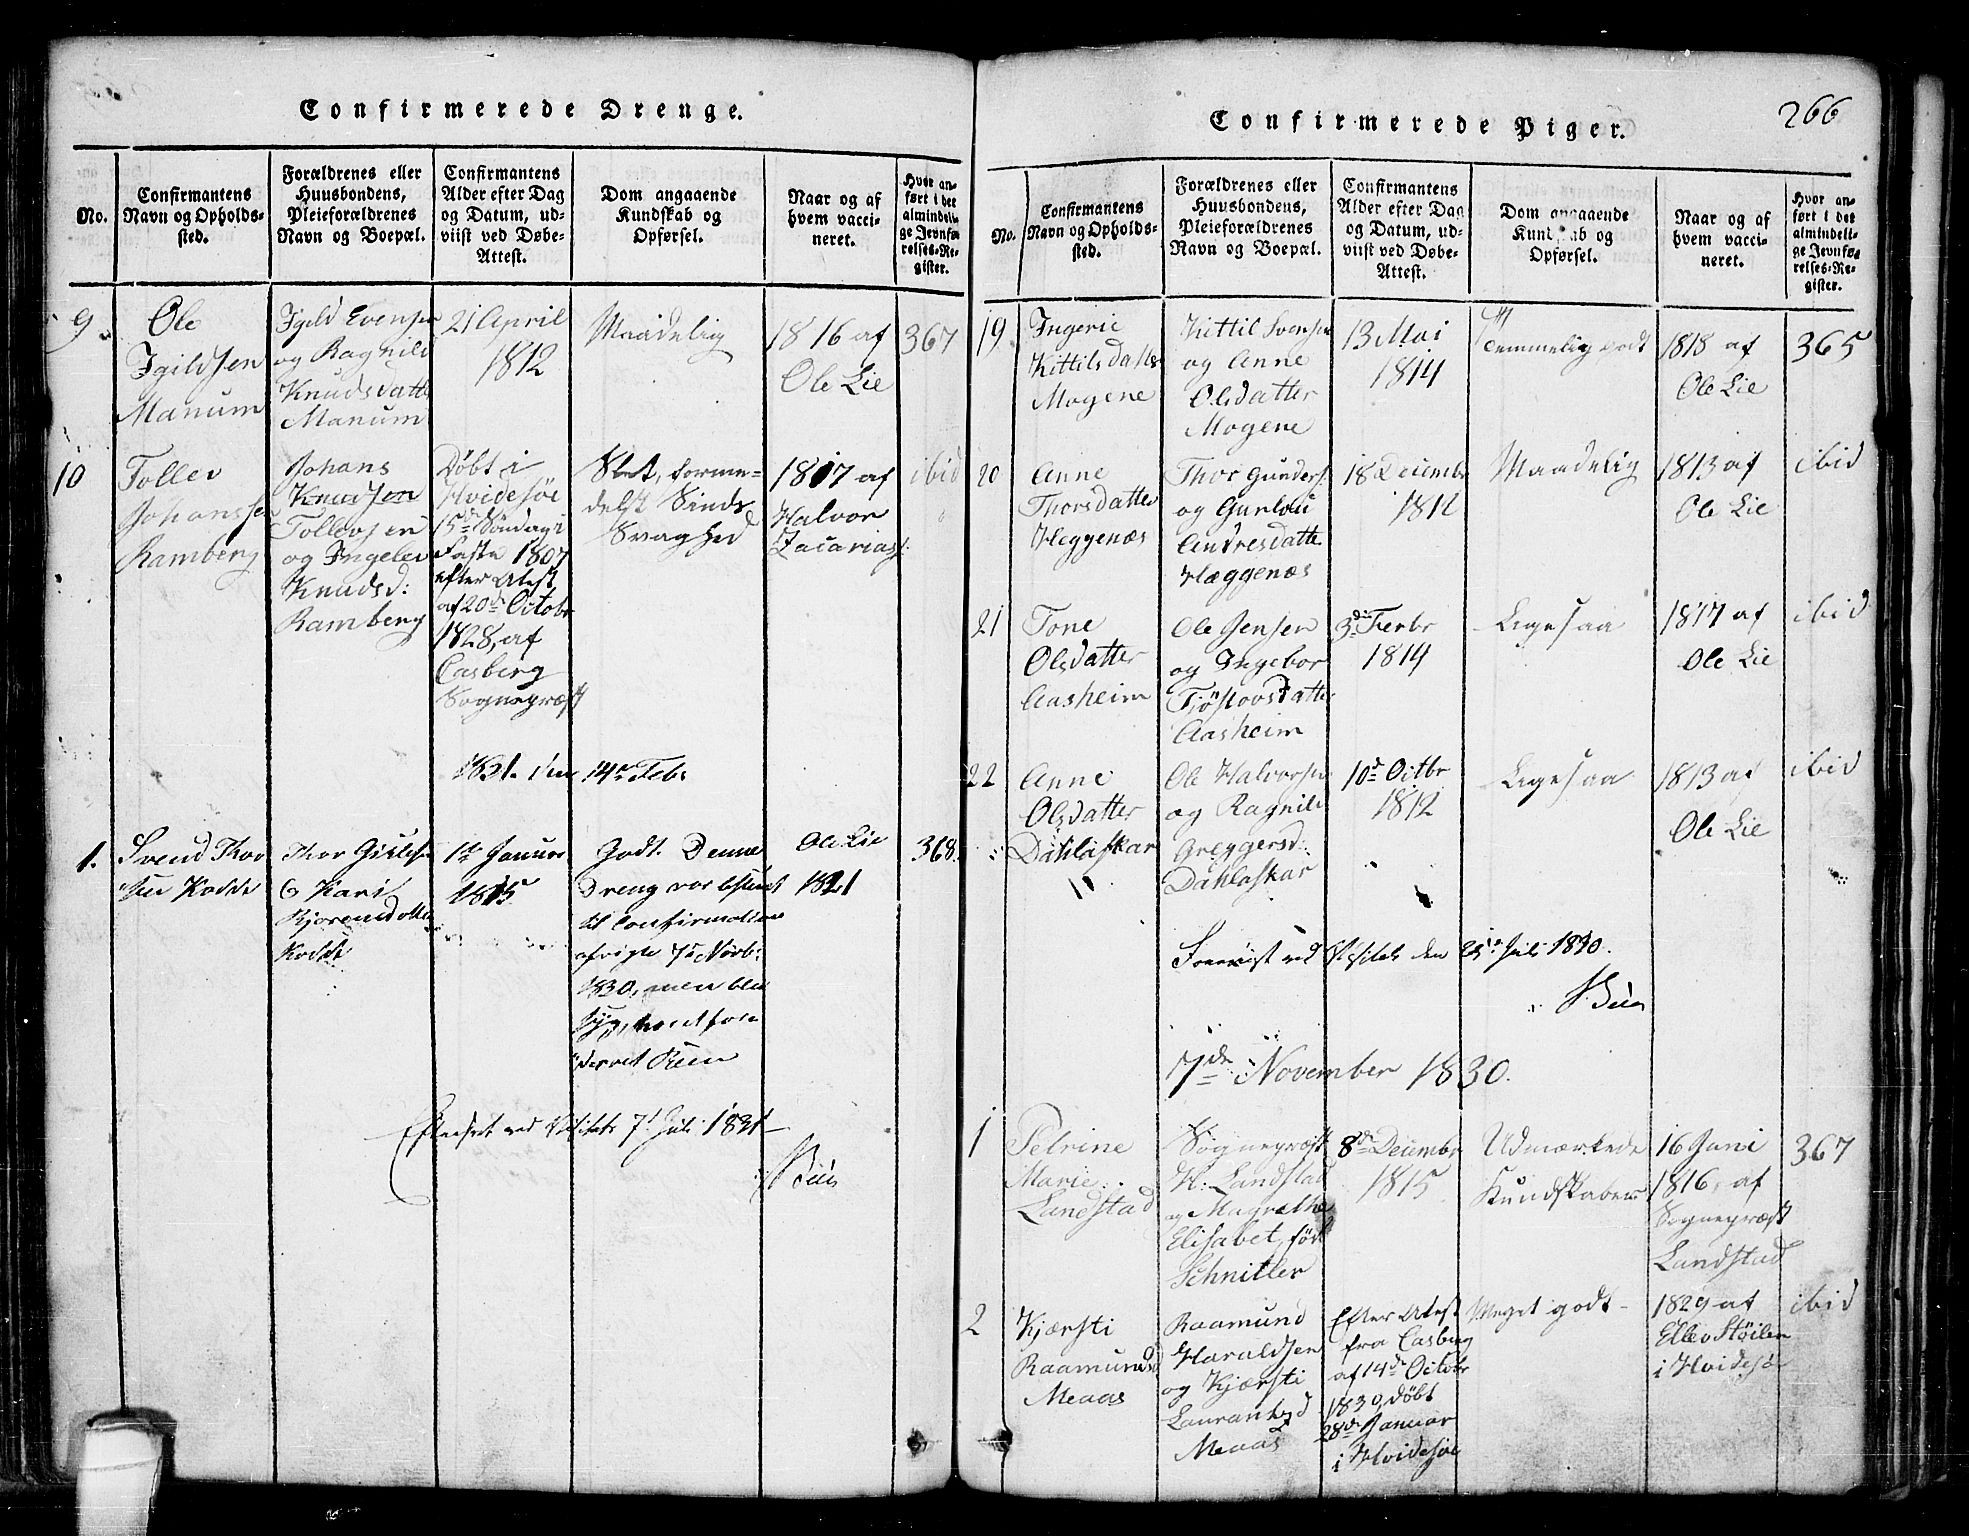 Confirmerede Drenge.
No.
Confirmantens
Navn og Opholds-
sted.
Forældrenes eller
Huusbondens,
Pleieforældrenes
Navn og Boepæl.
Confirmantens
Alder efter Dag
og Datum, ud-
viist ved Døbe-
Attest.
Dom angaaende
Kundskab og
Opførsel.
Naar og af
hvem vacci-
neret.
Hvor an-
ført i det
almindeli-
ge Jevnfø-
relses-Re-
gister.
9
Ole
Igildsen
Manum
Igild Evensen
og Ragnild
Knudsdatter
Manum
21 April
1812
Maadelig
1816 af
Ole Lie
367
10
Tollev
Johanssen
Ramberg
Johans
Knudsen
Tollevsen
og Ingelev
Knudsd:
Ramberg
Døbt i
Hvidesøe
5te Søndag i
Faste 1807
efter Atest
af 20de Octobr
1828, af
Casberg
Sognepræst
Slet, forme-
delst Sinds
Svaghed
1817 af
Halvor
Zacariass.
ibid
1831. den 14de Febr
1.
Svend Thor
sen Kodde
Thor
& Kari
Kodde
1ste Januar
1815
Godt. Denne
Dreng var bestemt
til Confirmation
afvigte 7de Novb:
1830, men blev
syg,
Ole Lie
1821
368.
Efterseet ved Visitats 7de Juli 1831
Confirmerede Piger.
266
No.
Confirmantens
Navn og Opholds-
sted.
Forældrenes eller
Huusbondens,
Pleieforældrenes
Navn og Boepæl.
Confirmantens
Alder efter Dag
og Datum, ud-
viist ved Døbe-
Attest.
Dom angaaende
Kundskab og
Opførsel.
Naar og af
hvem vacci-
neret.
Hvor an-
ført i det
almindeli-
ge Jevnfø-
relses-Re-
gister.
19
Ingerie
Kittilsdatter
Mogene
Kittil Svensen
og Anne
Olsdatter
Mogene
13 Mai
1814
Temmelig godt
1818 af
Ole Lie
365
20
Anne
Thorsdatter
Heggenæs
Thor Gunders.
og Gunlou
Andresdatter
Hæggenæs
18 December
1812
Maadelig
1813 af
Ole Lie
ibid
21
Tone
Olsdatter
Aasheim
Ole Jensen
og Ingebor
Tjöstovsdatter
Aasheim
3die Febr
1814
Ligesaa
1817 af
Ole Lie
ibid
22
Anne
Olsdatter
Dahlaskar
Ole Halvorsen
og Ragnild
Greggersd:
Dahlaskar
10de Octbr
1812
Ligesaa
1813 af
Ole Lie
ibid
Foreviist ved Visitats den Juli 1830.
7de November 1830.
1
Petrine
Marie
Landstad
Sognepræst
H: Landstad
og Magrethe
Elisabet, född
Schnitler
8de Decembr
1815
Udmærkede
Kundskaber
16 Juni
1816, af
Sognepræst
Landstad
367
2
Kjærsti
Raamundsd
Meaas
Raamund
Haraldsen
og Kjærsti
Meaas
Efter Atest
fra Casberg
af 14de Octobr
1830, döbt
28de Januar
i Hvidesøe
Meget godt
1829 af
Ellev Stöilen
i Hvidesøe
ibid